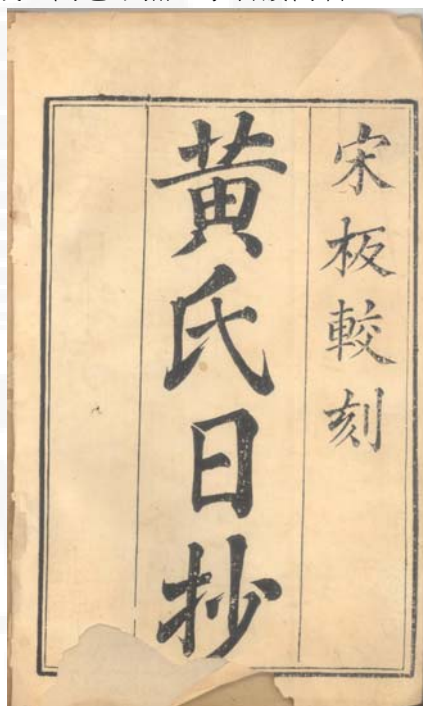 宋板較刻
黃氏日抄